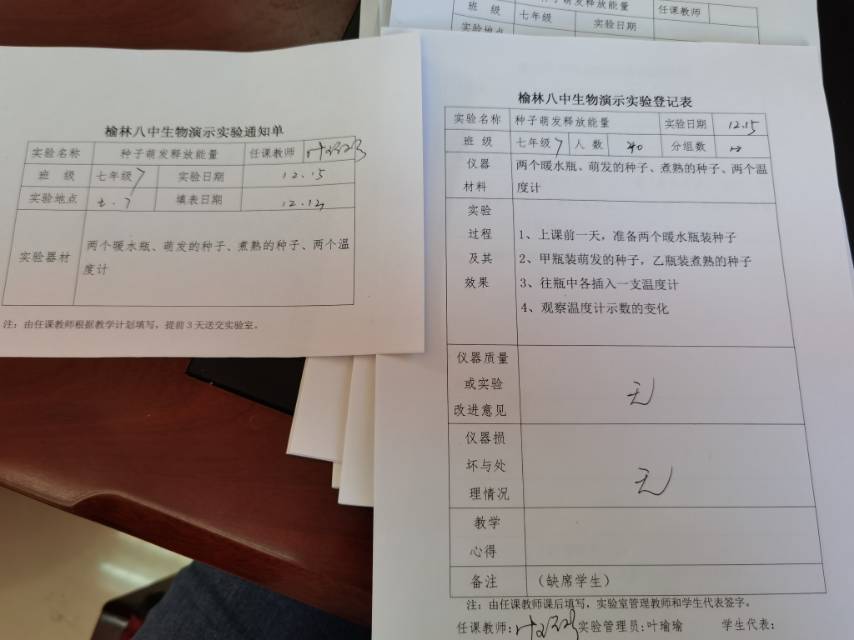 榆林八中生物演示实验通知单
实验名称 种子萌发释放能量 任课教师
班 级 七年级7 实验日期 12.15
实验地点 七.7 填表日期 12.12
实验器材 两个暖水瓶、萌发的种子、煮熟的种子、两个温
度计
注：由任课教师根据教学计划填写，提前3天送交实验室。
班 级 七年级 实验日期
种子萌发释放能量 任课教师
实验地点
榆林八中生物演示实验登记表
实验名称 种子萌发释放能量 实验日期 12.15
班 级 七年级7 人 数 40 分组数
仪器
材料
两个暖水瓶、萌发的种子、煮熟的种子、两个温
度计
实验
过程
及其
效果
1、上课前一天，准备两个暖水瓶装种子
2、甲瓶装萌发的种子，乙瓶装煮熟的种子
3、往瓶中各插入一支温度计
4、观察温度计示数的变化
仪器质量
或实验
改进意见
无
仪器损
坏与处
理情况
无
教学
心得
备注 （缺席学生）
注：由任课教师课后填写，实验室管理教师和学生代表签字。
任课教师： 实验管理员：叶瑜瑜 学生代表：